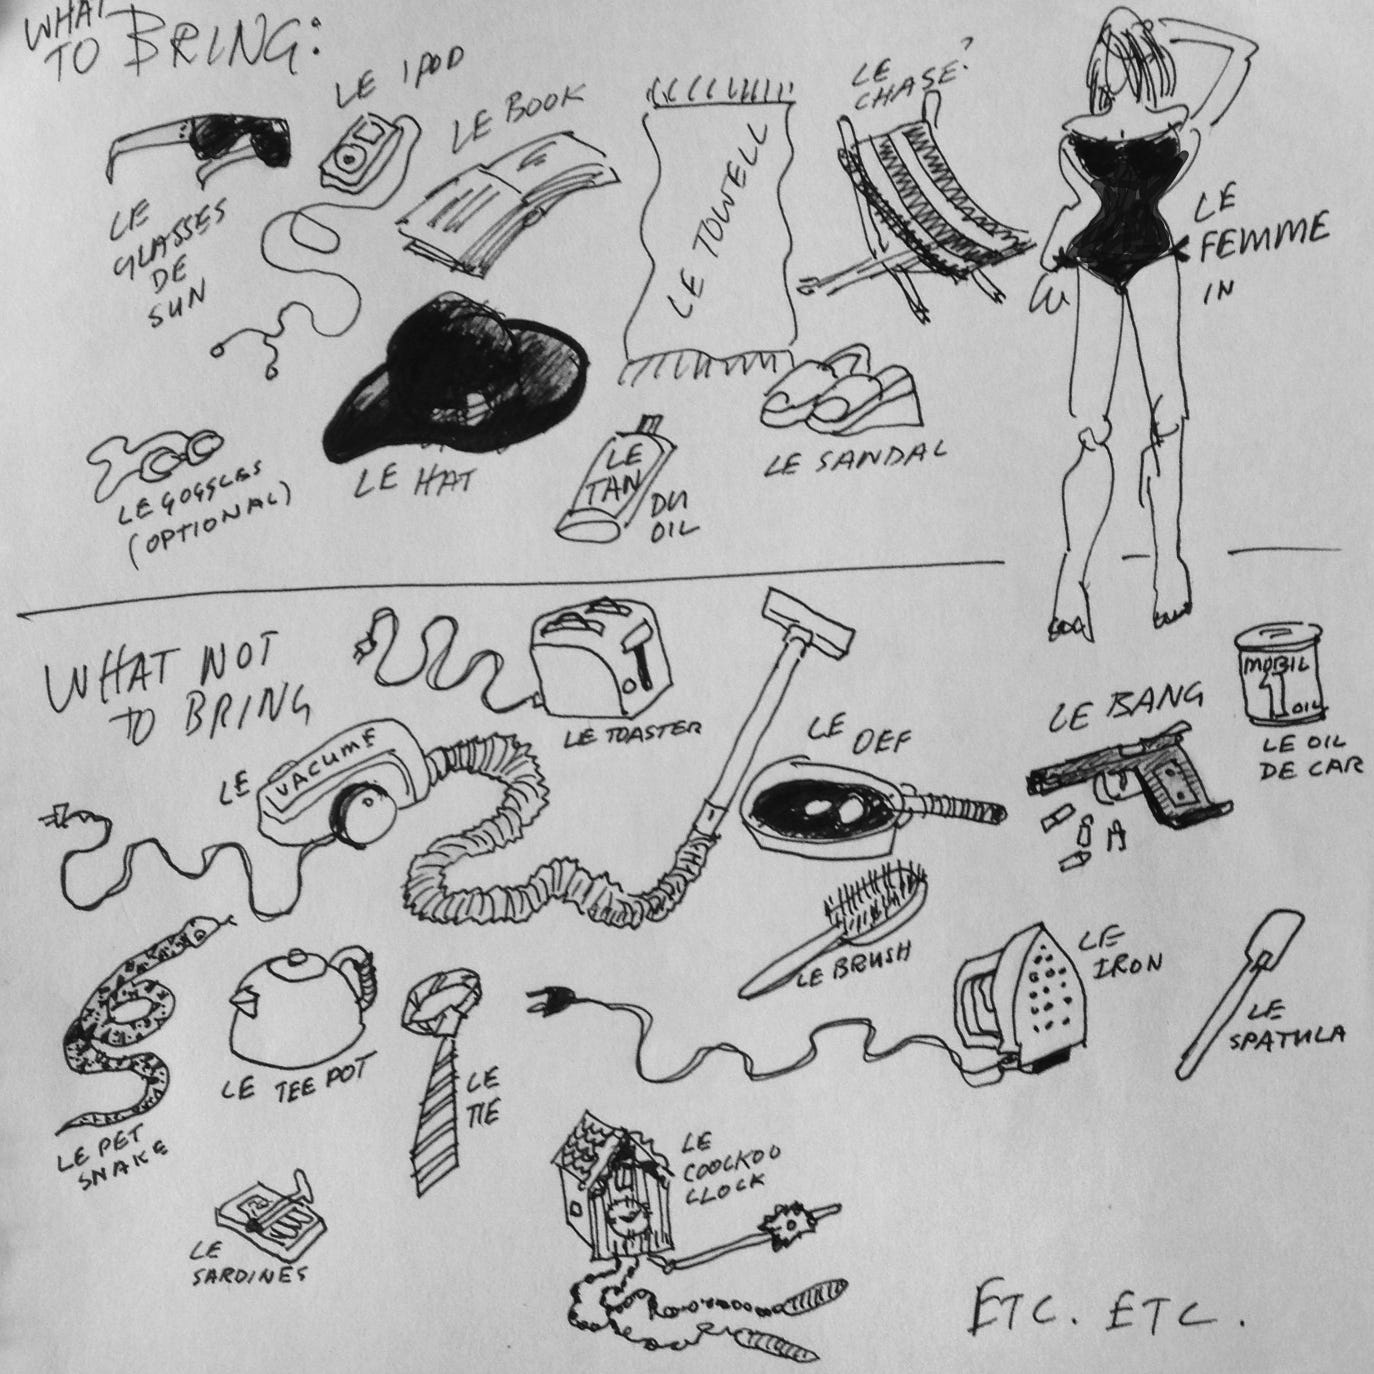 WHAT
TO BRING:
LE IPOD
LE BOOK
LE
CHASE?
LE
GLASSES
DE
SUN
LE TOWELL
LE
FEMME
IN
LE HAT
LE GOGGLES
(OPTIONAL)
LE
TAN
DU
OIL
LE SANDAL
WHAT NOT
TO BRING
LE TOASTER
LE
VACUME
LE OEF
LE BANG
MOBIL
1
OIL
LE OIL
DE CAR
LE BRUSH
LE
IRON
LE
SPATULA
LE PET
SNAKE
LE TEE POT
LE
TIE
LE
SARDINES
LE
COOCKOO
CLOCK
ETC. ETC.